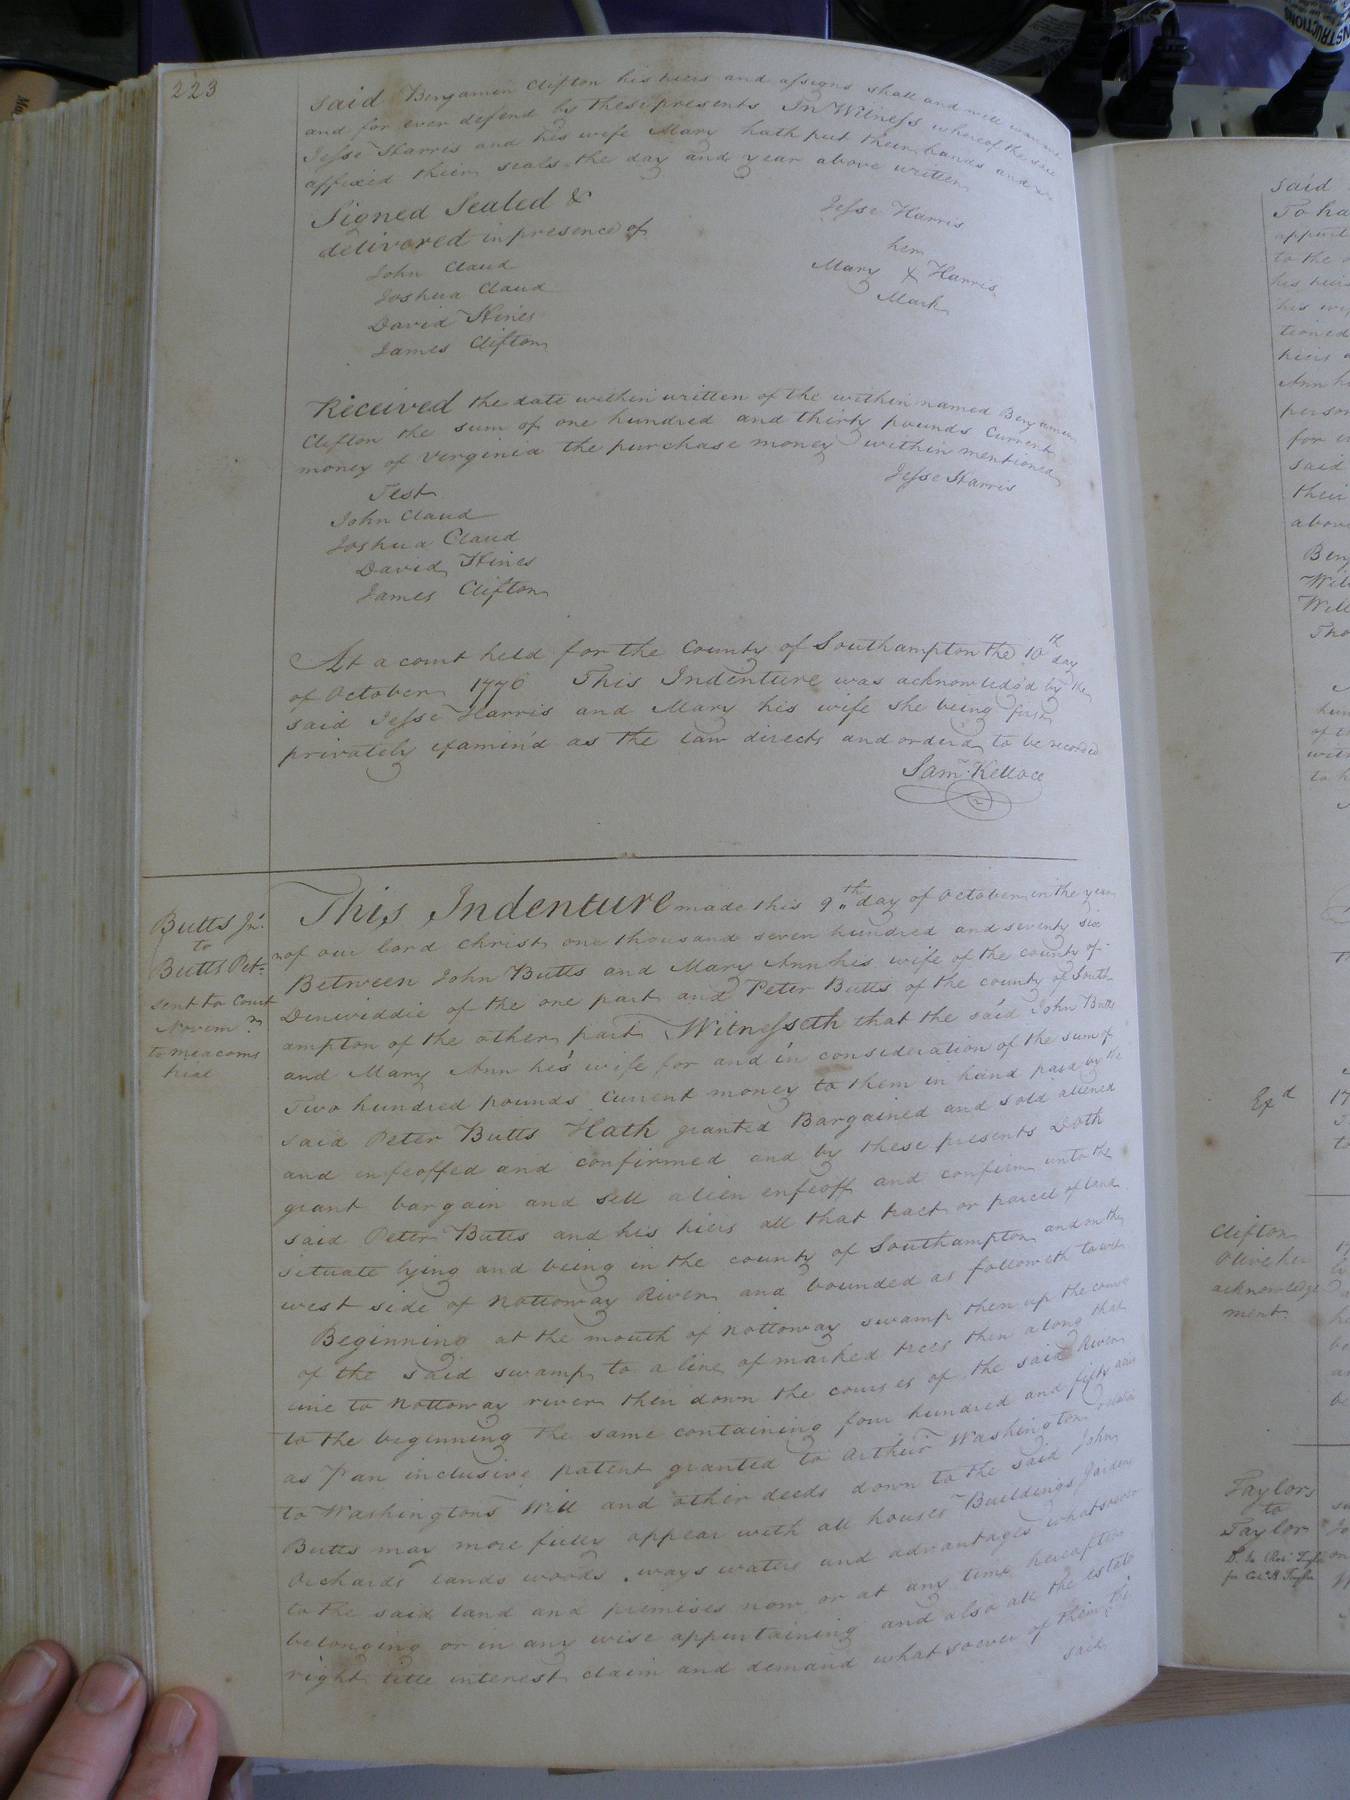 223
said Benjamin Clifton his heirs and assigns shall and will warrant
and for ever defend by these presents In Witness whereof the said
Jesse Harris and his wife Mary hath put their hands and
affixed their seals the day and year above written
Signed Sealed &
delivered in presence of
Jesse Harris
her
Mary X Harris
Mark
John Claud
Joshua Claud
David Hines
James Clifton
Received the date within written of the within named Benjamin
Clifton the sum of one hundred and thirty pounds Current
money of Virginia the purchase money within mentioned
Jesse Harris
Test
John Claud
Joshua Claud
David Hines
James Clifton
At a court held for the County of Southampton the 10th day
of October 1776 This Indenture was acknowledg'd by the
said Jesse Harris and Mary his wife she being first
privately examin'd as the law directs and order'd to be recorded
Sam.l Kelloce
Butts Jn.o
to
Butts Pet.r
sent to Court
Novem
This Indenture made this 9th day of October in the year
of our lord christ one thousand seven hundred and seventy six
Between John Butts and Mary Ann his wife of the county of
Dinwiddie of the one part and Peter Butts of the county of South-
ampton of the other part Witnesseth that the said John Butts
and Mary Ann his wife for and in consideration of the sum of
Two hundred pounds Current money to them in hand paid by the
said Peter Butts Hath granted Bargained and sold aliened
and enfeoffed and confirmed and by these presents Doth
grant bargain and sell alien enfeoff and confirm unto the
said Peter Butts and his heirs all that tract or parcel of land
situate lying and being in the county of Southampton and on the
west side of Nottoway River and bounded as followeth to wit
Beginning at the mouth of Nottoway swamp then up the course
of the said swamp to a line of marked trees then along that
line to Nottoway river then down the courses of the said River
to the beginning the same containing four hundred and fifty acres
as Pr an inclusive patent granted to Arthur Washington relation
to Washingtons Will and other deeds down to the said John
Butts may more fully appear with all houses Buildings Gardens
Orchards lands woods ways waters and advantages whatsoever
to the said land and premises now or at any time hereafter
belonging or in any wise appurtaining and also all the estate
right title interest claim and demand whatsoever of them the
said
said
To ha
appurt
to the
his heirs
his wife
tioned
heirs
Ann h
person
for
said
their
above
Benj
Will
Will
Tho
Exd
17
Clifton
Olive her
acknowledge
ment
Taylors
to
Taylor